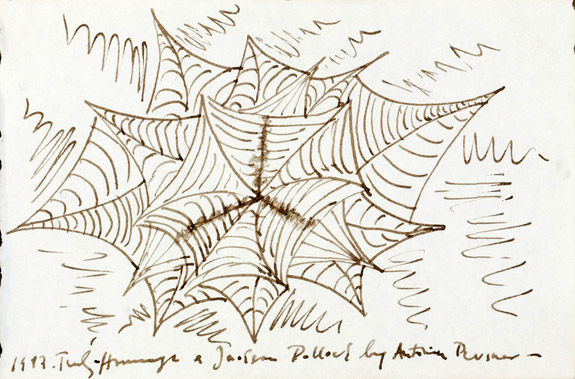 Hommage a Jackson Pollock by Antoine Pevsner —